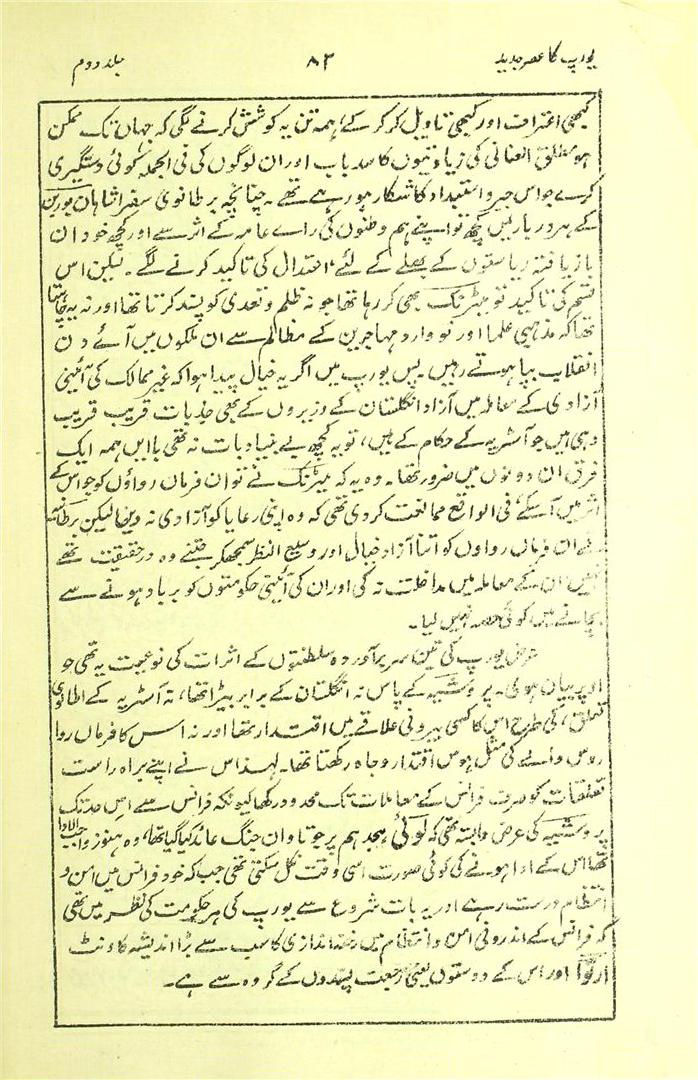 یورپ کا عصر جدید ۸۲ جلد دوم
کبھی اعتراف اور کبھی تاویل کر کر کے، ہمہ تن یہ کوشش کرنے لگی کہ جہاں تک ممکن
ہو مطلق العنانی کی زیادتیوں کا سدباب اور ان لوگوں کی فی الجملہ کوئی دستگیری
کرے جو اس جبر و استبداد کا شکار ہو رہے تھے۔ چنانچہ برطانوی سفیر شاہان بوربن
کے ہر دربار میں گئے تو اپنے ہم وطنوں کی رائے عامہ کے اثر سے اور کچھ خود ان
بازیافتہ ریاستوں کے بھلے کے لئے اعتدال کی تاکید کرنے لگے۔ لیکن اس
قسم کی تاکید تو میٹرنک بھی کر رہا تھا جو نہ ظلم و تعدی کو پسند کرتا تھا اور نہ یہ چاہتا
تھا کہ مذہبی علما اور نو وارد مہاجرین کے مظالم سے ان ملکوں میں آئے دن
انقلاب بپا ہوتے رہیں۔ پس یورپ میں اگر یہ خیال پیدا ہوا کہ غیر ممالک کی آئینی
آزادی کے معاملہ میں آزاد انگلستان کے وزیروں کے بھی جذبات قریب قریب
وہی ہیں جو آسٹریہ کے حکام کے ہیں، تو یہ کچھ بے بنیاد بات نہ تھی با ایں ہمہ ایک
فرق ان دونوں میں ضرور تھا۔ وہ یہ کہ میٹرنک نے تو ان فرماں رواؤں کو جو اس کے
اثر میں آسکے، فی الواقع ممانعت کر دی تھی کہ وہ اپنی رعایا کو آزادی نہ دیں لیکن برطانیہ
نے ان فرماں رواوں کو اتنا آزاد خیال اور وسیع النظر سمجھ کر جتنے وہ در حقیقت تھے
نہیں ان کے معاملہ میں مداخلت نہ کی اور ان کی آئینی حکومتوں کو برباد ہونے سے
بچانے میں کوئی حصہ نہیں لیا۔
غرض یورپ کی تین سربرآوردہ سلطنتوں کے اثرات کی نوعیت یہ تھی جو
اوپر بیان ہوئی۔ پروشیہ کے پاس نہ انگلستان کے برابر بیڑا تھا، نہ آسٹریہ کے اطالوی
تعلق، کی طرح اس کا کسی بیرونی علاقے میں اقتدار تھا اور نہ اس کا فرماں روا
روس والے کی مثل ہوس اقتدار و جاہ رکھتا تھا۔ لہذا اس نے اپنے براہ راست
تعلقات کو صرف فرانس کے معاملات تک محدود رکھا کیونکہ فرانس سے اس حد تک
پروشیہ کی غرض وابستہ تھی کہ لوئی ہجدہم پر جو تاوان جنگ عائد کیا گیا تھا، وہ ہنوز واجب الادا
تھا اس کے ادا ہونے کی کوئی صورت اسی وقت نکل سکتی تھی جب کہ خود فرانس میں امن و
انتظام درست رہے اور یہ بات شروع سے یورپ کی ہر حکومت کی نظر میں تھی
کہ فرانس کے اندرونی امن و انتظام میں رخنہ اندازی کا سب سے بڑا اندیشہ کاونٹ
ارتوا اور اس کے دوستوں یعنی رجعت پسندوں کے گروہ سے ہے۔